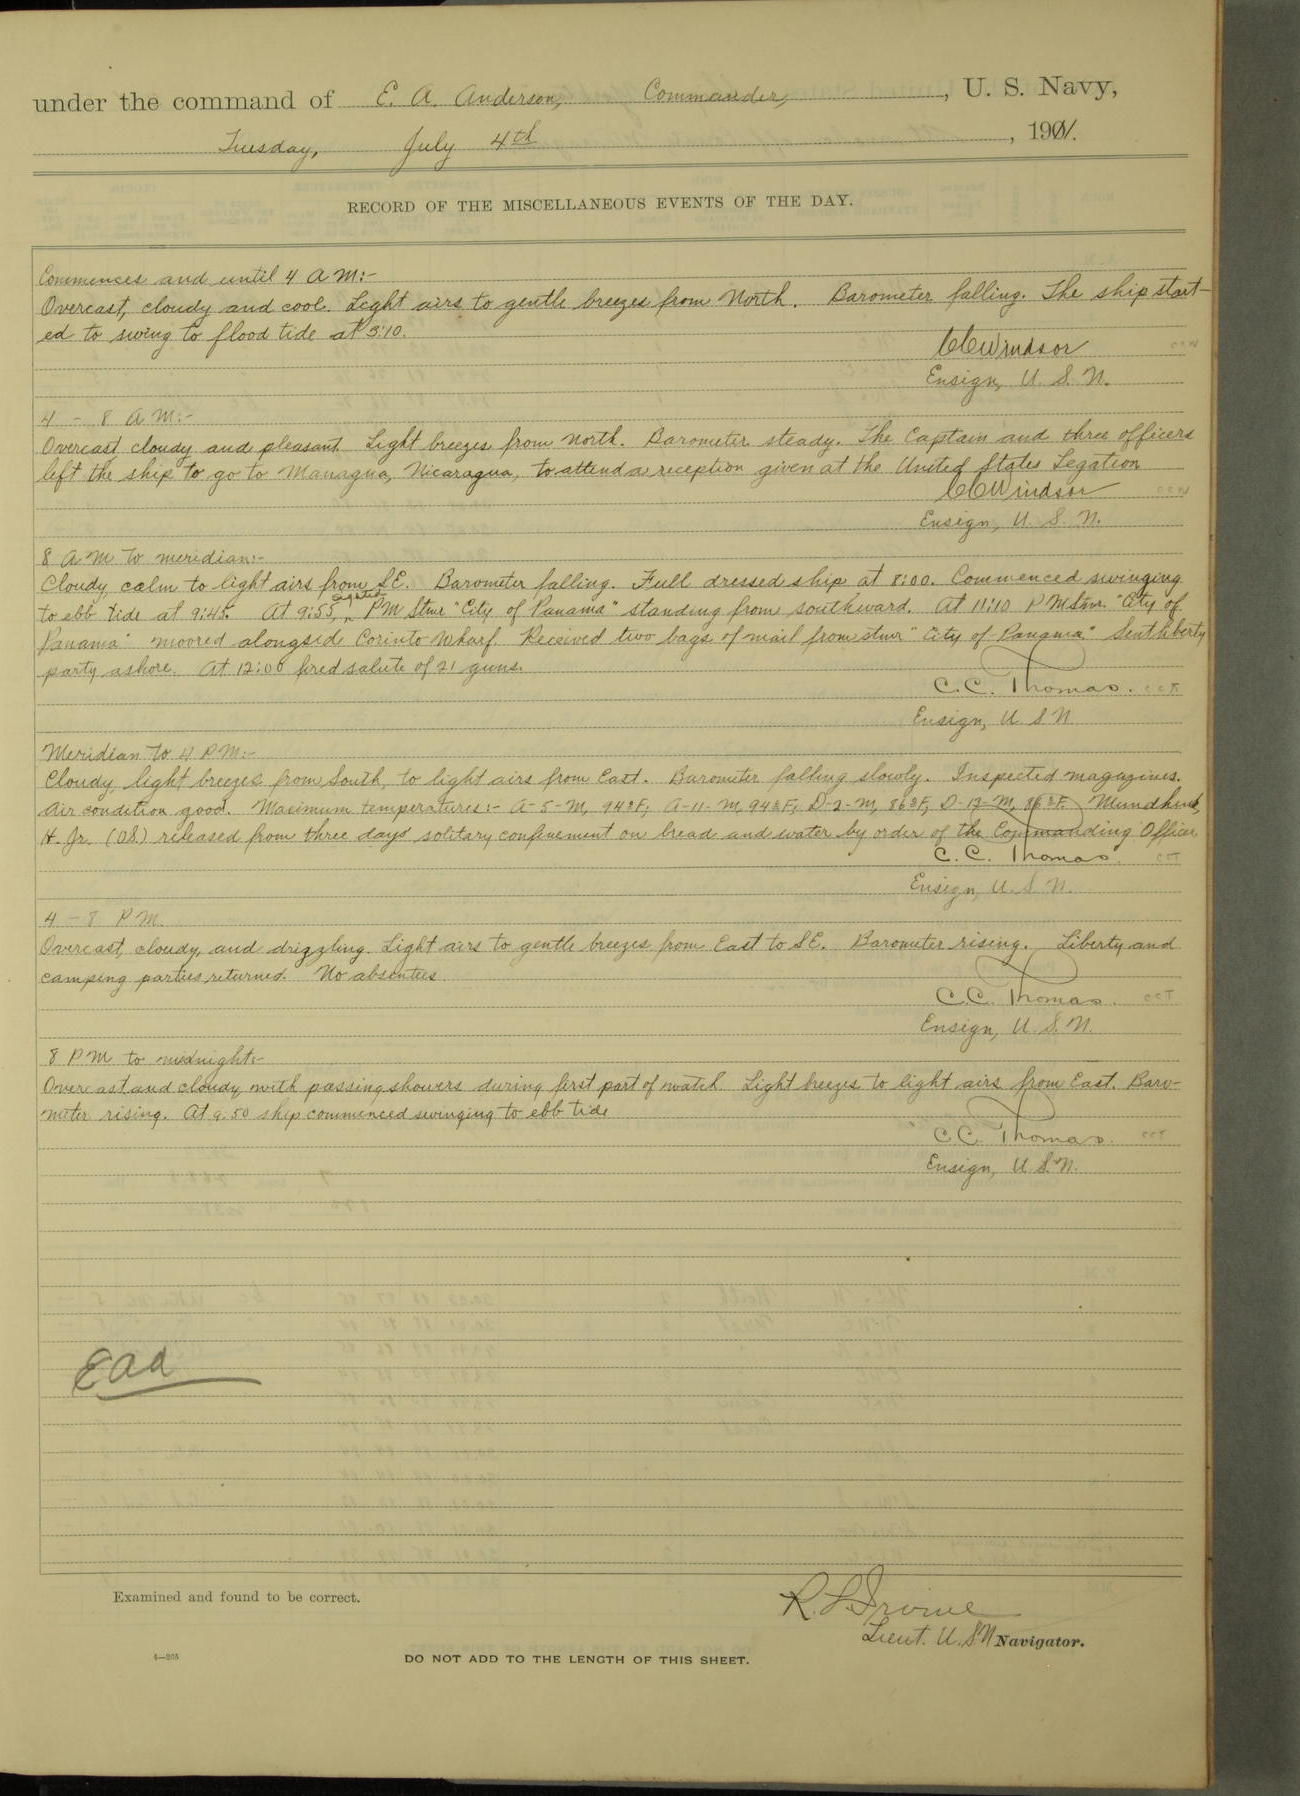 under the command of E. A. Anderson, Commander, U. S. Navy,
Tuesday, July 4th, 1911.
RECORD OF THE MISCELLANEOUS EVENTS OF THE DAY.
Commences and until 4 A M:-
Overcast, cloudy and cool. Light airs to gentle breezes from North. Barometer falling. The ship start-
ed to swing to flood tide at 3:10.
CCWindsor
Ensign, U. S. N.
4 - 8 A M:-
Overcast cloudy and pleasant. Light breezes from North. Barometer steady. The Captain and three officers
left the ship to go to Managua, Nicaragua, to attend a reception given at the United States Legation
CCWindsor
Ensign, U. S. N.
8 A M to meridian:-
Cloudy, calm to light airs from SE. Barometer falling. Full dressed ship at 8:00. Commenced swinging
to ebb tide at 9:45. At 9:55, sighted PM Stmr "City of Panama" standing from southward. At 11:10 P M Stmr. "City of
Panama" moored alongside Corinto Wharf. Received two bags of mail from stmr "City of Panama." Sent liberty
party ashore. At 12:00 fired salute of 21 guns.
C.C. Thomas.
Ensign, U S N
Meridian to 4 P M:-
Cloudy, light breezes from South, to light airs from East. Barometer falling slowly. Inspected magazines.
Air condition good. Maximum temperatures:- A-5-M, 94°F; A-11-M, 94°F; D-2-M, 86°F, D-12-M, 86°F.
H. Jr. (OS) released from three days' solitary confinement on bread and water by order of the Commanding Officer
C.C. Thomas.
Ensign, U. S. N.
4 - 8 P M.
Overcast, cloudy, and drizzling. Light airs to gentle breezes from East to SE. Barometer rising. Liberty and
camping parties returned. No absentees.
C.C. Thomas.
Ensign, U. S. N.
8 P M to midnight:-
Overcast and cloudy, with passing showers during first part of watch. Light breezes to light airs from East. Baro-
meter rising. At 9:50 ship commenced swinging to ebb tide
C.C. Thomas.
Ensign, U. S. N.
EAA
Examined and found to be correct.
R. L. Irvine
Lieut. U. S N Navigator.
DO NOT ADD TO THE LENGTH OF THIS SHEET.